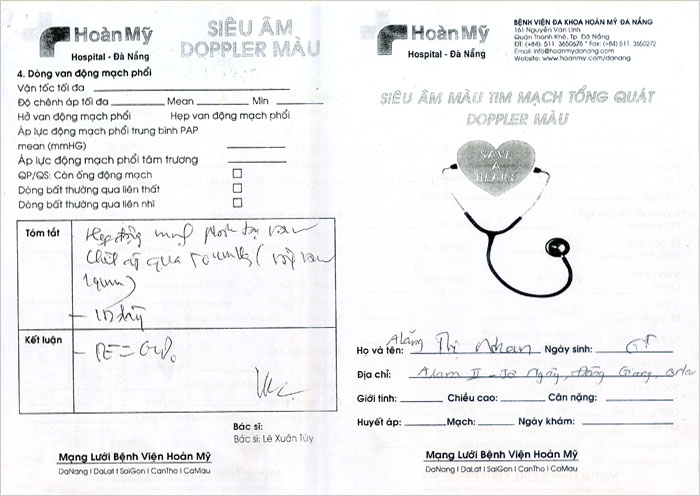 Hoàn Mỹ
Hospital - Đà Nẵng
SIÊU ÂM
DOPPLER MÀU
4. Dòng van động mạch phổi
Vận tốc tối đa
Độ chênh áp tối đa Mean Min
Hở van động mạch phổi Hẹp van động mạch phổi
Áp lực động mạch phổi trung bình PAP
mean (mmHG)
Áp lực động mạch phổi tâm trương
QP/QS: Còn ống động mạch
Dòng bất thường qua liên thất
Dòng bất thường qua liên nhĩ
Tóm tắt
Hẹp động mạch phổi tại van
qua
Kết luận
Bác sĩ:
Bác sĩ: Lê Xuân Túy
Mạng Lưới Bệnh Viện Hoàn Mỹ
DaNang I DaLat I SaiGon I CanTho I CaMau
Hoàn Mỹ
Hospital - Đà Nẵng
BỆNH VIỆN ĐA KHOA HOÀN MỸ ĐÀ NẴNG
161 Nguyễn Văn Linh
Quận Thanh Khê, Tp. Đà Nẵng
ĐT: (+84). 511. 3650676 * Fax: (+84) 511. 3650272
Email: info@hoanmydanang.com
Website: www.hoanmy.com/danang
SIÊU ÂM MÀU TIM MẠCH TỔNG QUÁT
DOPPLER MÀU
SAVE
A
HEART
Họ và tên: Alăng Thị Nhan Ngày sinh: 6T
Địa chỉ: II
Giới tính: Chiều cao: Cân nặng:
Huyết áp: Mạch: Ngày khám:
Mạng Lưới Bệnh Viện Hoàn Mỹ
DaNang I DaLat I SaiGon I CanTho I CaMau